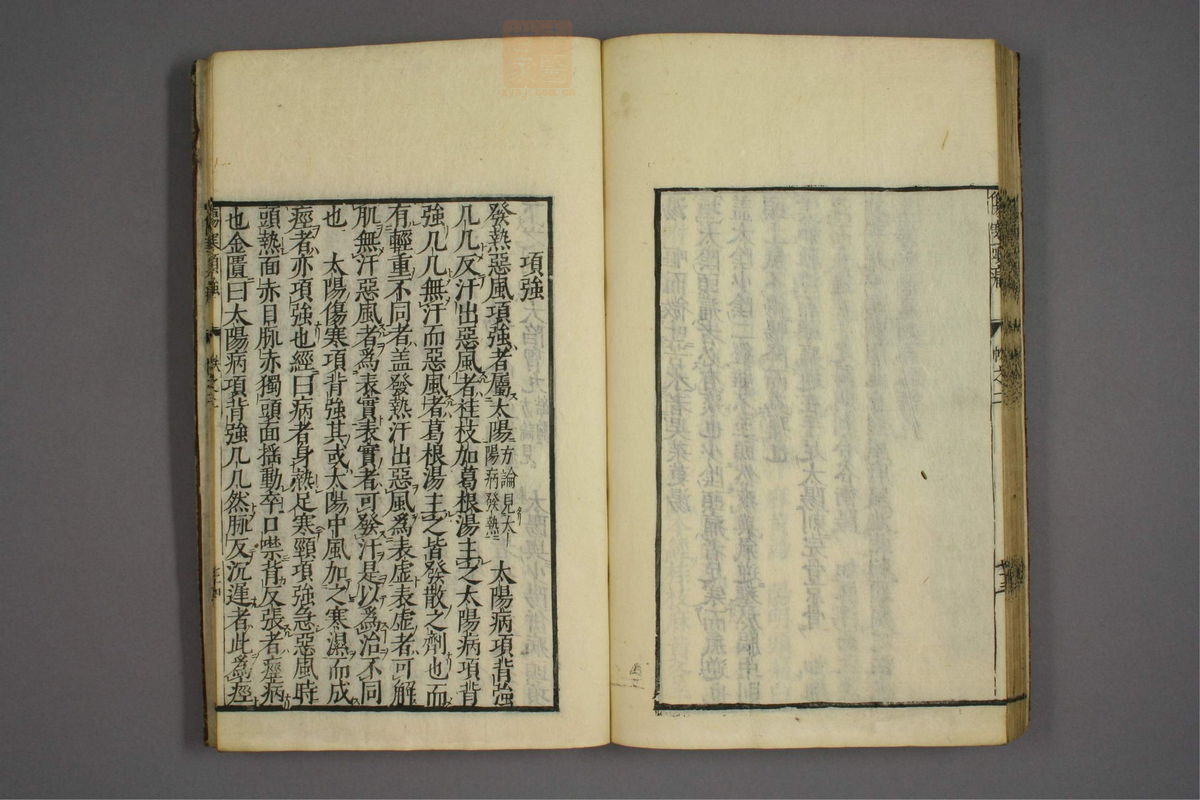 項強
發熱惡風項強者屬太陽方論見太陽病發熱 太陽病項背強
几几反汗出惡風者桂枝加葛根湯主之太陽病項背
強几几無汗而惡風者葛根湯主之皆發散之劑也而
有輕重不同者盖發熱汗出惡風爲表虛表虛者可解
肌無汗惡風者爲表實表實者可發汗是以爲治不同
也 太陽傷寒項背強其或太陽中風加之寒濕而成
痙者亦項強也經曰病者身熱足寒頸項強急惡風時
頭熱面赤目脉赤獨頭面揺動卒口噤背反張者痙病
也金匱曰太陽病項背強几几然脉反沉遲者此爲痙